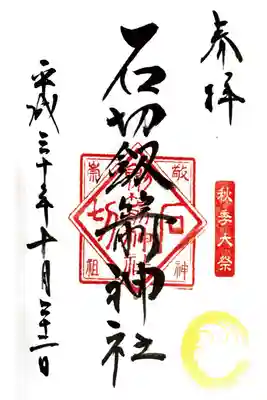 奉拝
秋季大祭
石切劔箭神社
敬神
崇祖
平成三十年十月二十二日